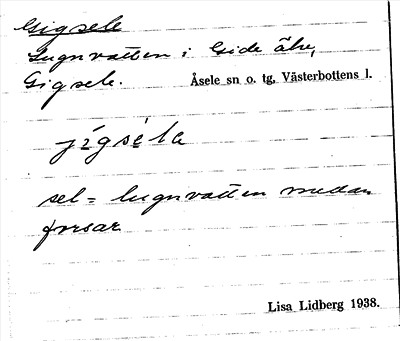 Gigsele
Lugnvatten i Gide älv,
Gigsele.
Åsele sn o. tg. Västerbottens l.
jígséla
sel = lugnvatten medan
forsar
Lisa Lidberg 1938.